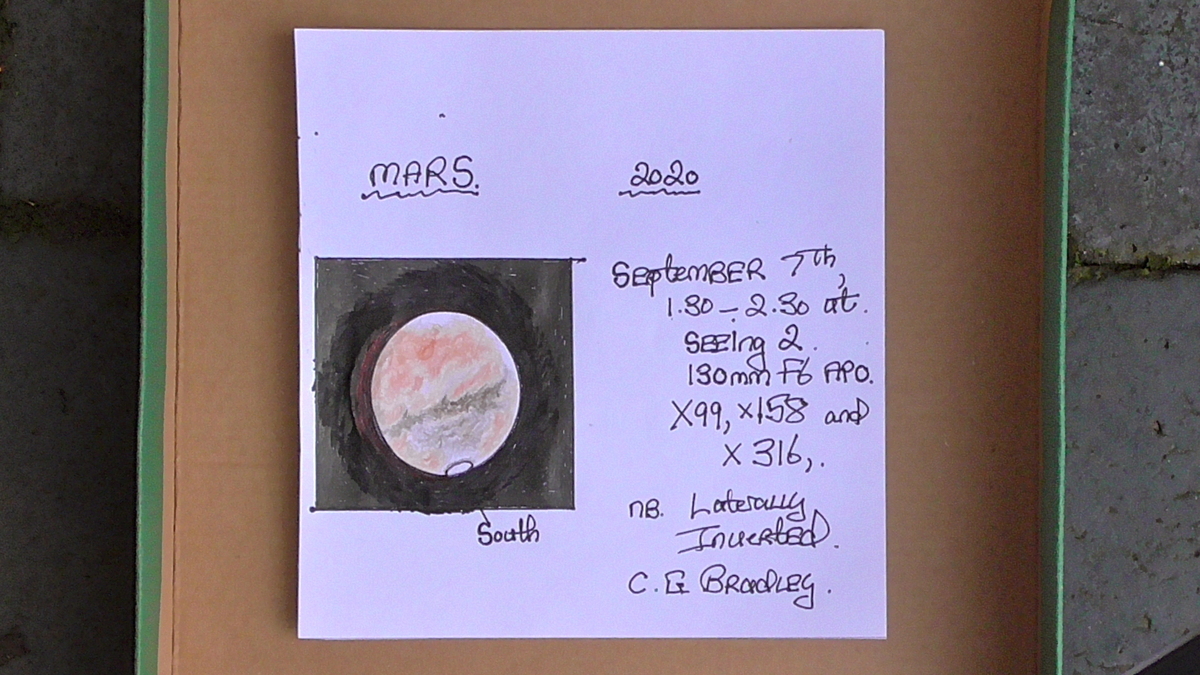 MARS.
2020
SEptemBER 7th,
1.30 - 2.30 ut.
SEEIng 2.
130mm F6 APO.
X99, x158 and
X 316,.
nB. Laterally
InvertED.
C. E BRADLEy.
South